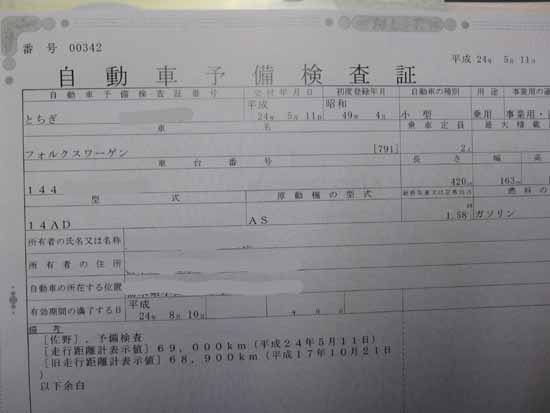 番号 00342
平成 24年 5月 11日
自動車予備検査証
自動車予備検査証番号 交付年月日 初度登録年月 自動車の種別 用途
とちぎ 平成 24年 5月 11日 昭和 49年 4月 小型 乗用
車名 乗車定員 最大積載
フォルクスワーゲン [791] 2人
車台番号 長さ 幅 高
144 420cm 163cm
型式 原動機の型式 燃料の
14AD AS 1.58 ガソリン
所有者の氏名又は名称
所有者の住所
自動車の所在する位置
有効期間の満了する日 平成 24年 8月 10日
備考
[佐野],予備検査
[走行距離計表示値]69,000km(平成24年5月11日)
[旧走行距離計表示値]68,900km(平成17年10月21日
)
以下余白